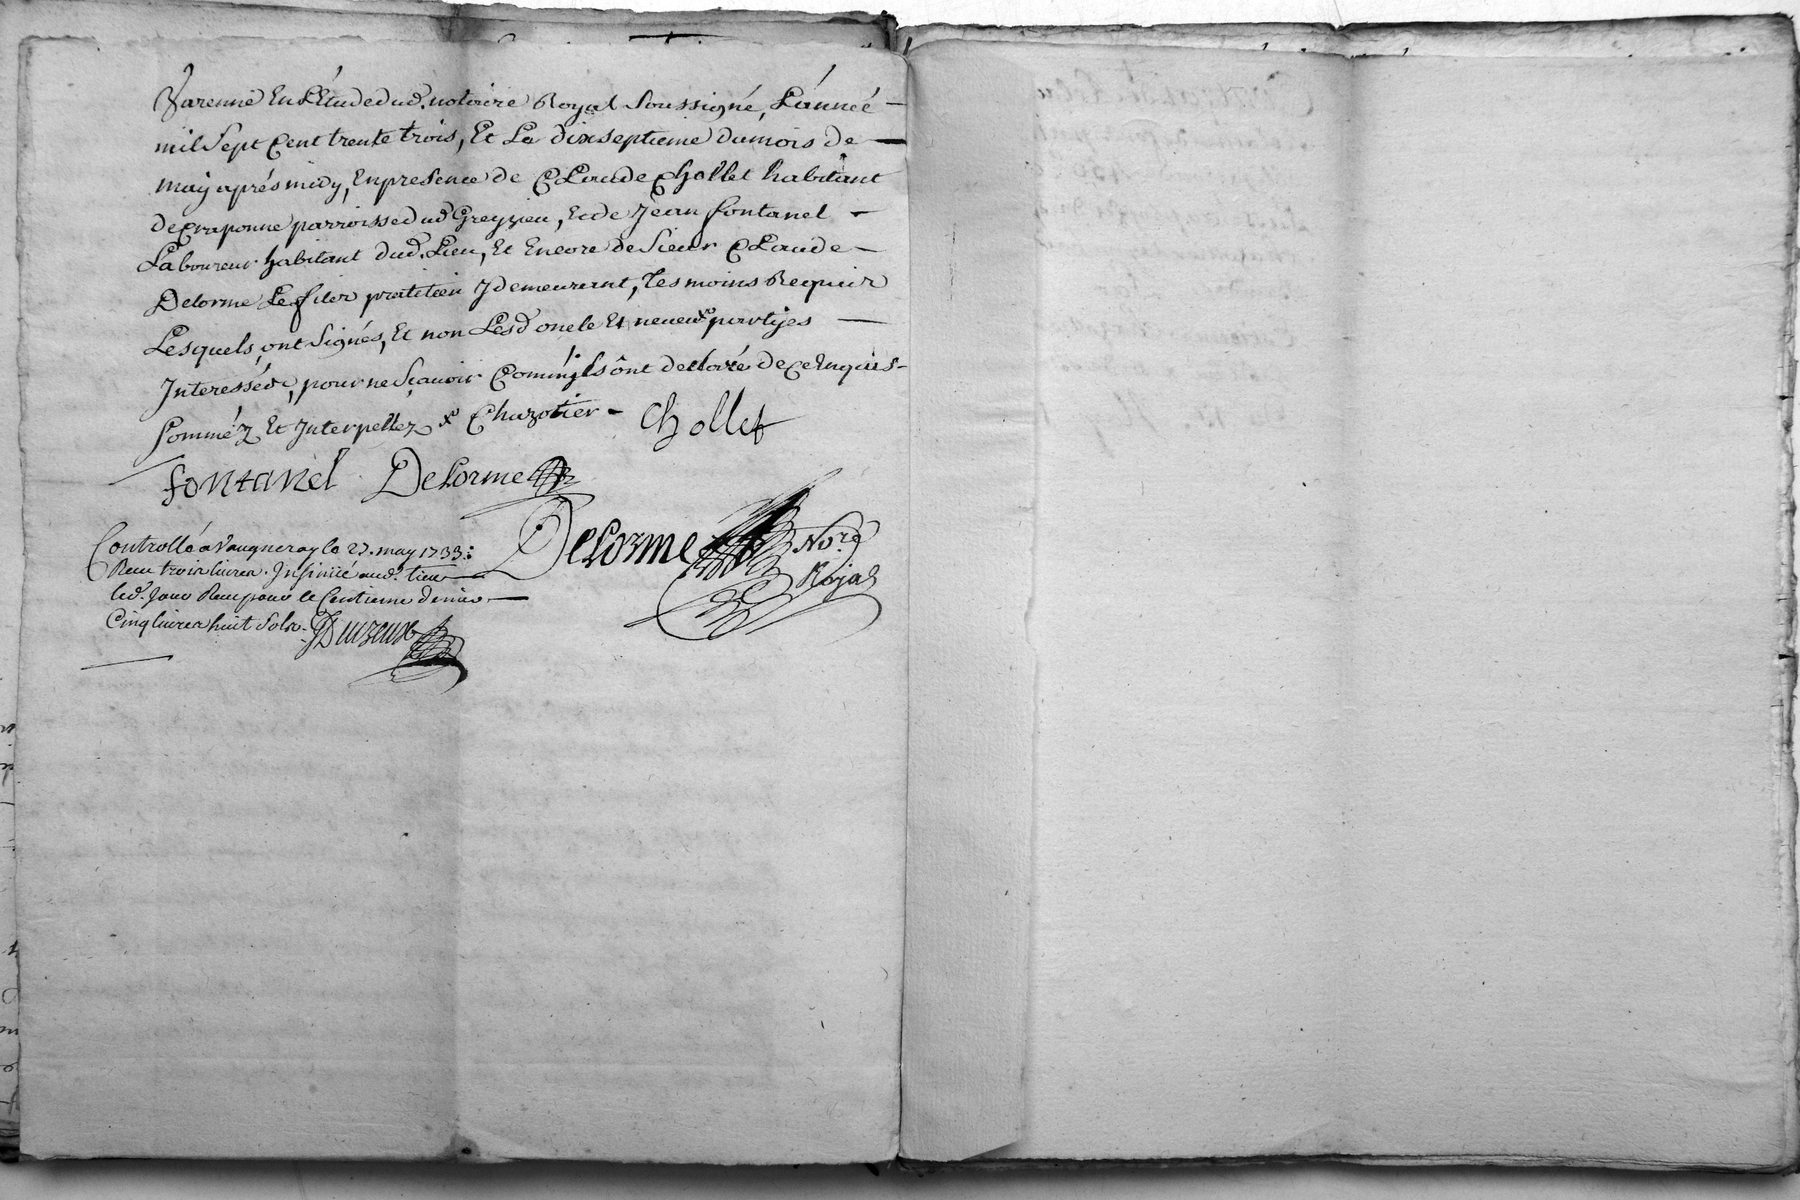 Varenne En L'Etude dud. notaire Royal soussigné, L'année
mil sept Cent trente trois, Et La dixseptieme du mois de
may aprés midy, En presence de Claude Chollet habitant
de Craponne parroisse dud Greyzieu, Et de Jean fontanel
Laboureur habitant dud. Lieu, Et Encore de Sieur Claude
Delorme Le fils praticien y demeurant, tesmoins Requis
Lesquels ont signés, Et non Lesd oncle Et neveux partyes
Interessées, pour ne sçavoir Comm'jls ônt declaré de ce Enquis
somméz Et Interpellez Chazotier Chollet
fontanel Delorme
Delorme No.re
Royal
Controllé a Vaugneray le 27. may 1733:
Receu trois livres. Insinué aud. lieu
led. Jour Receu pour le Centieme denier
Cinq livres huit sols.